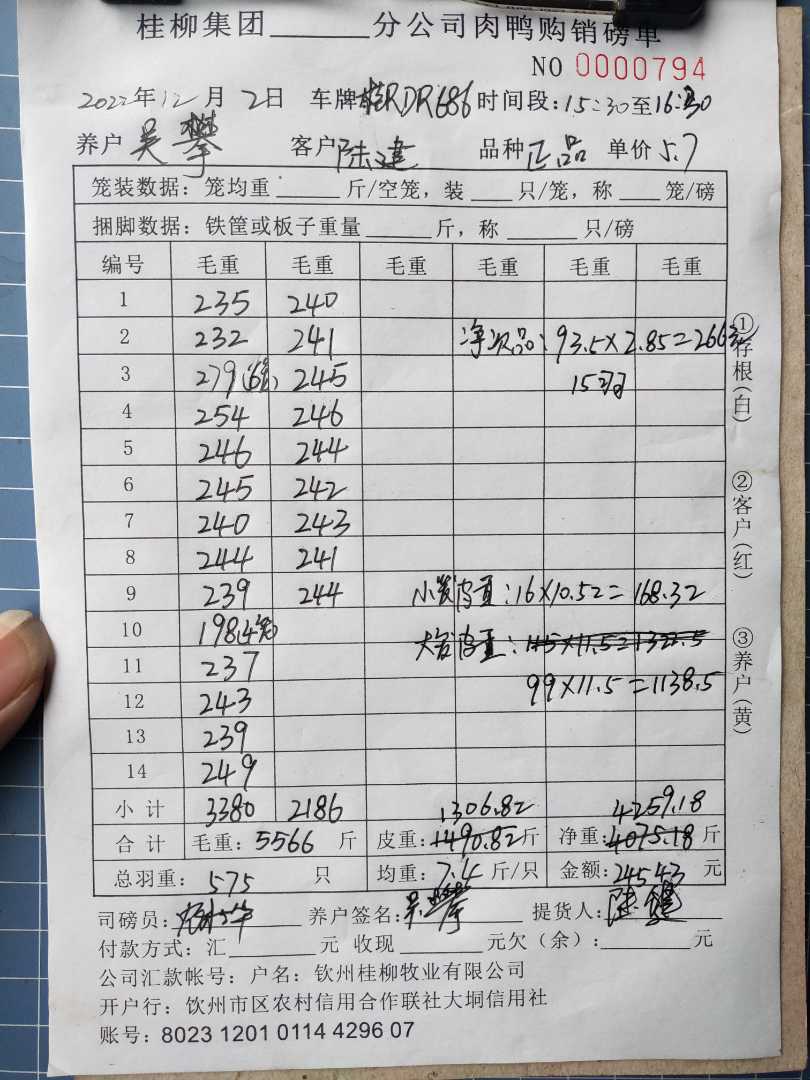 桂柳集团______分公司肉鸭购销磅单
NO 0000794
2022年12月2日 车牌桂RDR686 时间段:15:30至16:30
养户 吴攀 客户 陈建 品种 正品 单价 5.7
笼装数据:笼均重______斤/空笼,装____只/笼,称____笼/磅
捆脚数据:铁筐或板子重量______斤,称______只/磅
编号 毛重 毛重 毛重 毛重 毛重 毛重
1 235 240
2 232 241 净次品:93.5×2.85=266元
3 279(6笼) 245 15羽
4 254 246
5 246 244
6 245 242
7 240 243
8 244 241
9 239 244 小笼皮重:16×10.52=168.32
10 198(4笼) 大笼皮重:115×11.5=1322.5
11 237 99×11.5=1138.5
12 243
13 239
14 249
小计 3380 2186 1306.82 4259.18
合计 毛重:5566 斤 皮重:1490.82斤 净重:4075.18斤
总羽重:575 只 均重:7.4斤/只 金额:24543元
司磅员: 养户签名:吴攀 提货人:陈建
付款方式:汇______元 收现______元欠(余):______元
公司汇款帐号:户名:钦州桂柳牧业有限公司
开户行:钦州市区农村信用合作联社大垌信用社
账号:8023 1201 0114 4296 07
①存根(白)
②客户(红)
③养户(黄)